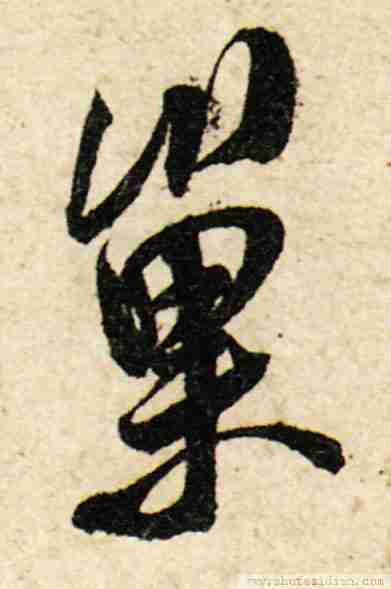 巢
www.shufazidian.com